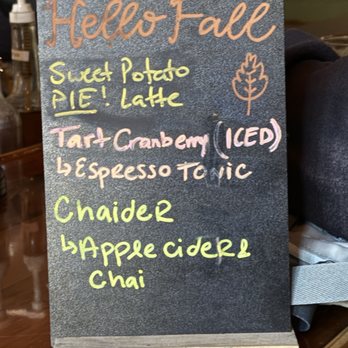 Hello Fall
Sweet Potato
PIE! Latte
Tart Cranberry (ICED)
↳Espresso Tonic
Chaider
↳Apple cider &
Chai